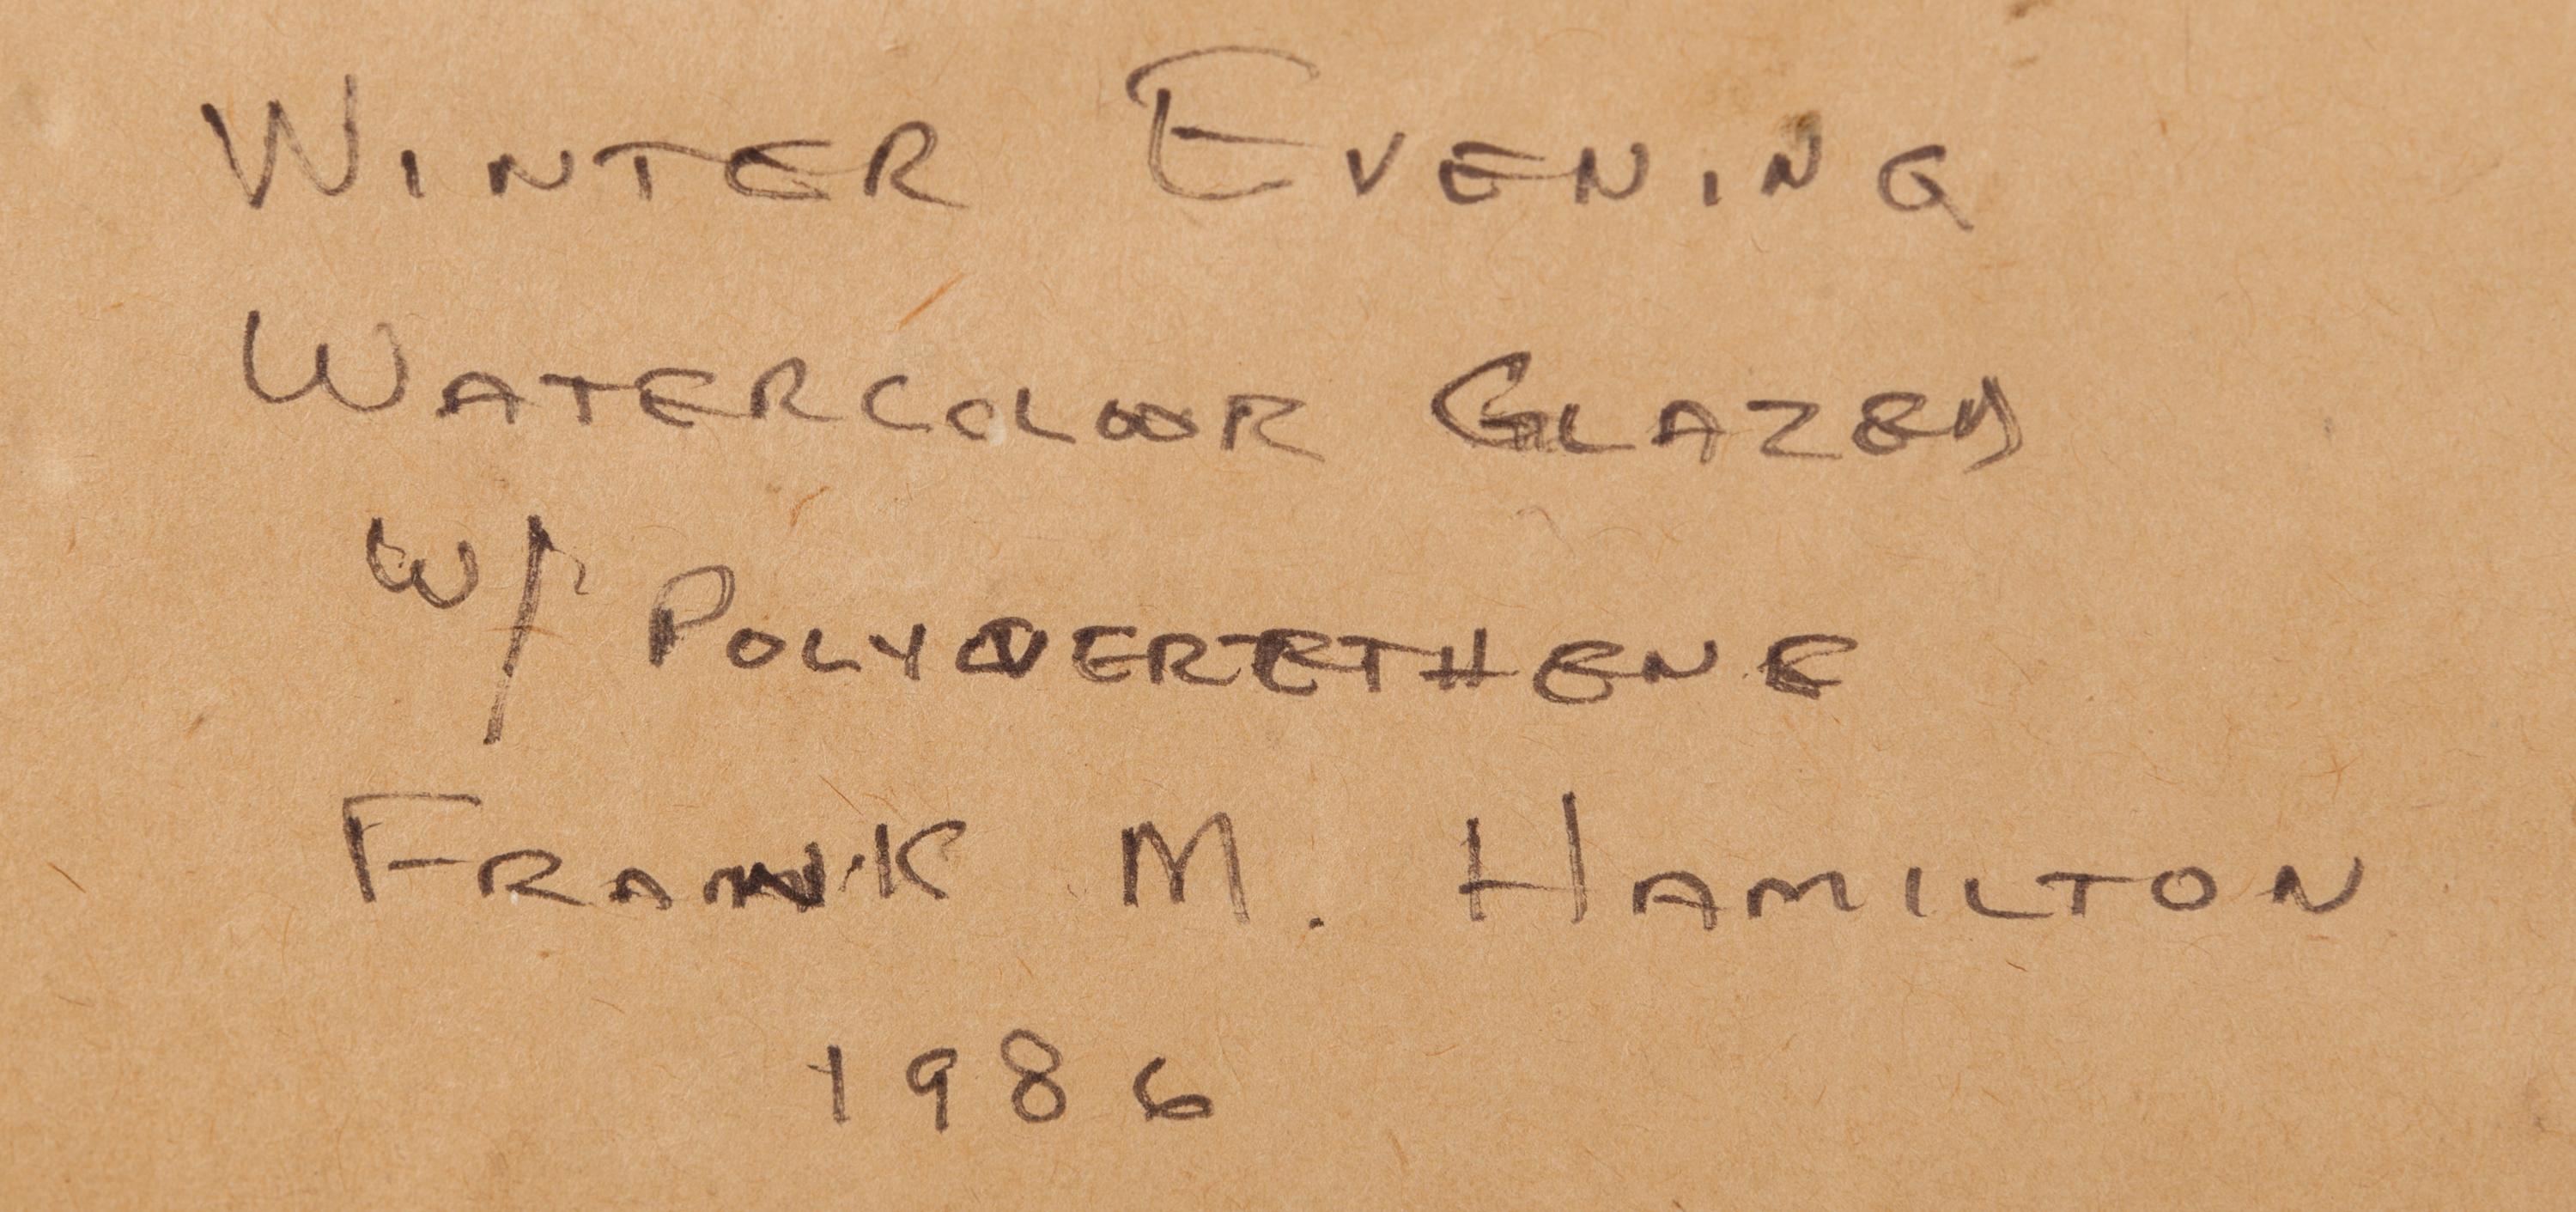 Winter Evening
Watercolor Glazed
w/ Polyverethene
Frank M. Hamilton
1986